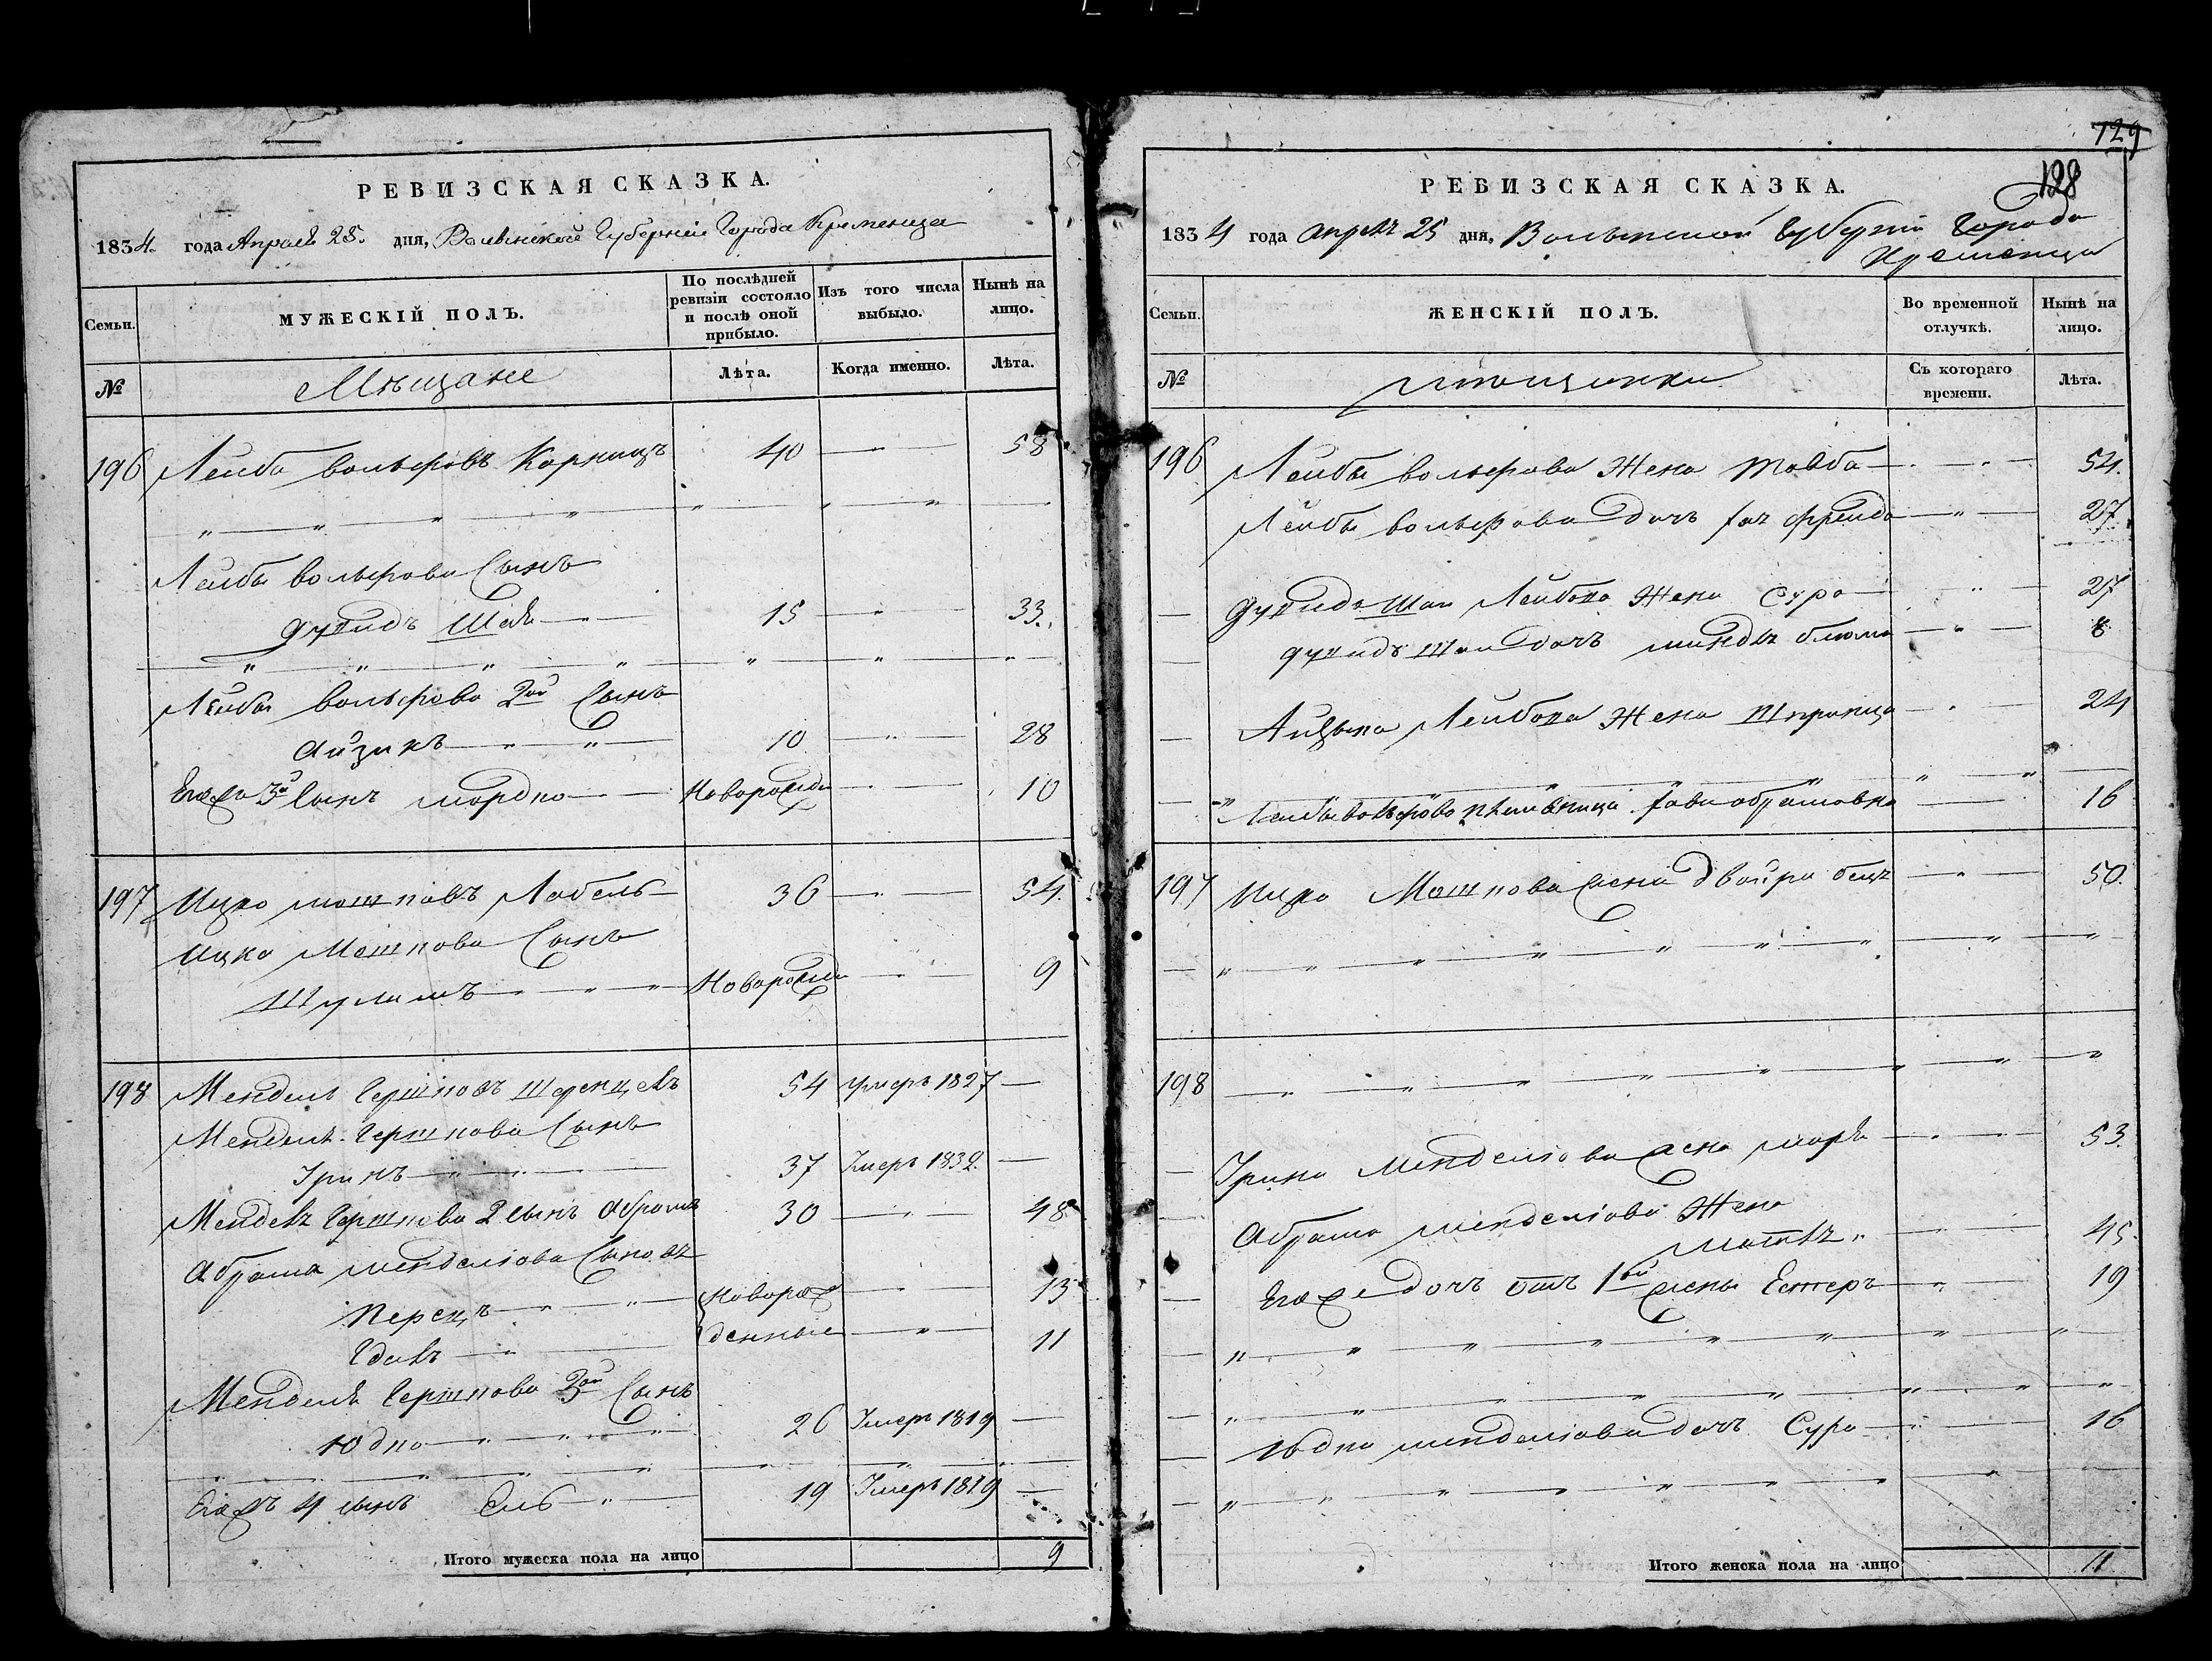 РЕВИЗСКАЯ СКАЗКА.
1834 года Апреля 25 дня, Волынской Губернии Города Кременца
Семьи.
МУЖЕСКІЙ ПОЛЪ.
По послѣдней ревизіи состояло и послѣ оной прибыло.
Изъ того числа выбыло.
Нынѣ на лицо.
№
Мѣщане
Лѣта.
Когда именно.
Лѣта.
196 Лейба Вольфовъ 40 — 58
Лейбы Вольфова Сынъ
Шая 15 — 33
Лейбы Вольфова 2й Сынъ
Айзикъ 10 — 28
Его же 3й Сынъ Мордко Новорожден 10
197 Ицко Мошковъ Лабель 36 — 54
Ицка Мошкова Сынъ
Шулимъ Новорожден 9
198 Мендель Гершковъ 54 умеръ 1827 —
Менделя Гершкова Сынъ
37 Умеръ 1832 —
Менделя Гершкова 2 сынъ Абрамъ 30 — 48
Абрама Менделіова Сыновья
Перецъ Новорож 13
денные 11
Менделя Гершкова 3й Сынъ
Юдко 26 Умеръ 1819 —
Его жъ 4 сынъ 19 Умеръ 1819 —
Итого мужеска пола на лицо 9
129
128
РЕВИЗСКАЯ СКАЗКА.
1834 года апреля 25 дня, Волынской Губерніи Города
Кременца
Семьи.
ЖЕНСКІЙ ПОЛЪ.
Во временной отлучкѣ.
Нынѣ на лицо.
№
мѣщанки
Съ котораго времени.
Лѣта.
196 Лейбы Вольфова Жена Товба 54
Лейбы Вольфова дочь Фрейда 27
Шаи Лейбова Жена Сура 27
Шаи дочь Блюма 8
Лейбова Жена Шпринца 24
Лейбы Вольфова племѣница Абрамовна 16
197 Ицка Мошкова жена Двойра 50
198
Менделіова жена 53
Абрама Менделіова Жена
45
Его же дочь отъ 1ой жены Естеръ 19
Юдка Менделіова дочь Сура 16
Итого женска пола на лицо 11